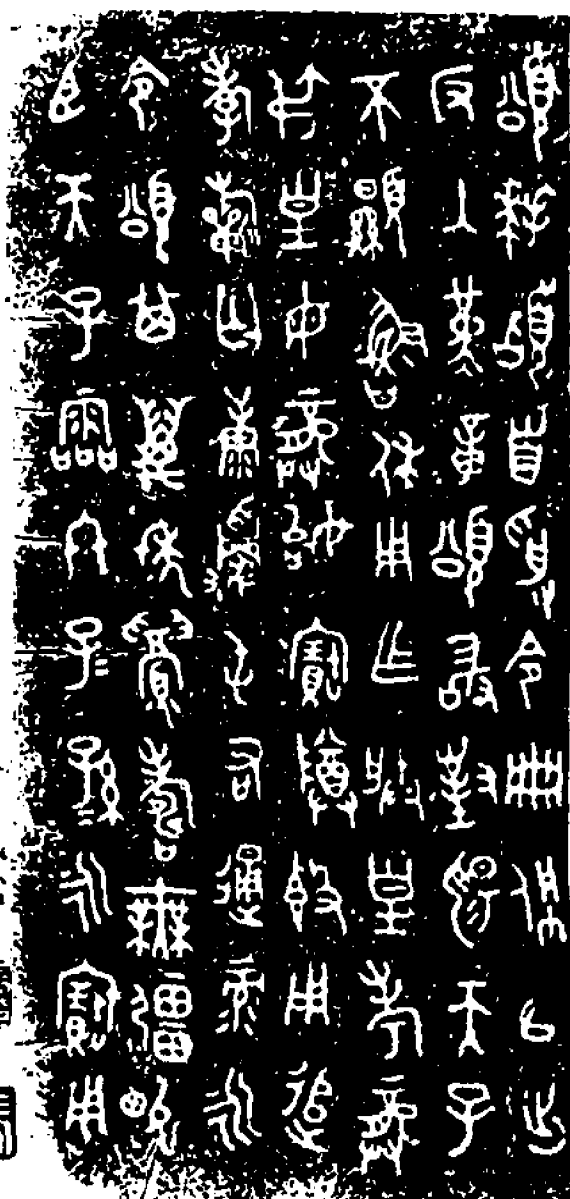 頌拜稽首受令冊佩以出
反入堇章頌敢對揚天子
不顯魯休用乍朕皇考龏
弔皇母龏始寶尊簋用追
孝祈匄康𩁹屯右通彔永
令頌其萬年眉壽無疆畯
臣天子霝冬子=孫=永寶用